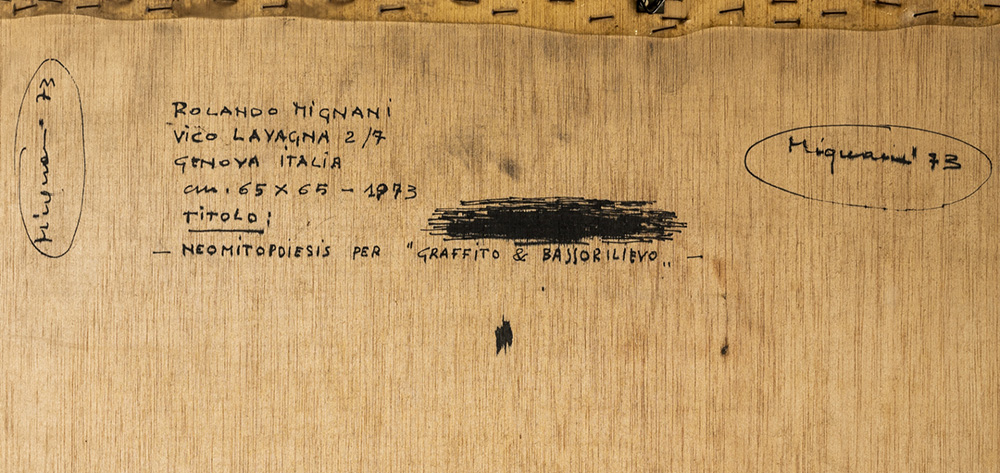 Mignani 73
ROLANDO MIGNANI
VICO LAVAGNA 2/7
GENOVA ITALIA
cm. 65 X 65 - 1973
TITOLO:
- NEOMITOPOIESIS PER "GRAFFITO & BASSORILIEVO„ -
Mignani' 73